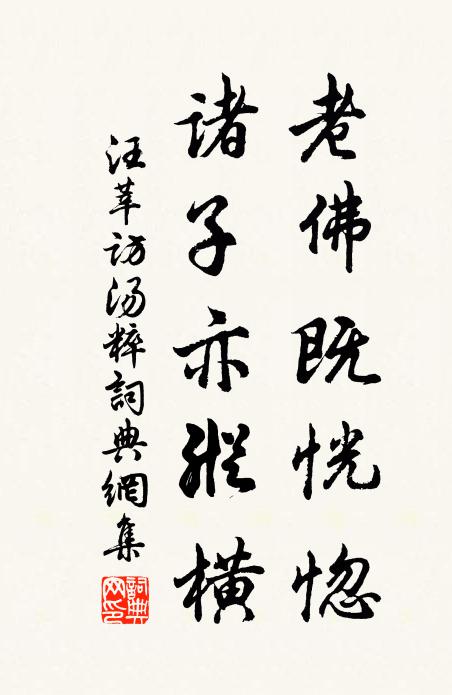 老佛既恍惚
诸子亦縱横
汪莘访汤粹詞典網集
詞典網印